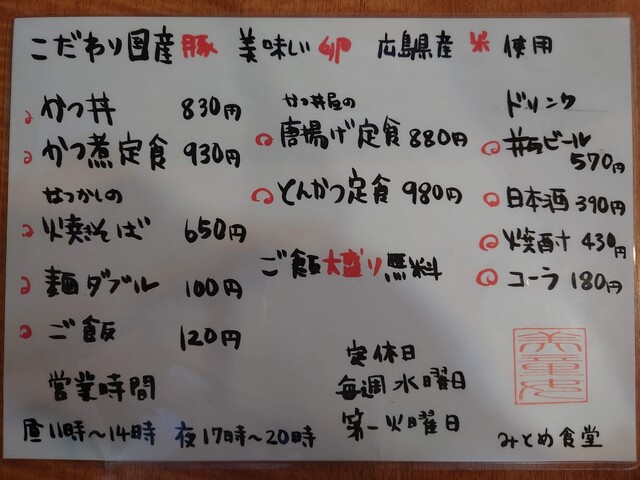 こだわり国産豚 美味しい卵 広島県産 米 使用
かつ丼 830円
かつ煮定食 930円
なつかしの
焼きそば 650円
麺ダブル 100円
ご飯 120円
かつ丼屋の
唐揚げ定食 880円
とんかつ定食 980円
ご飯大盛り無料
ドリンク
瓶ビール
570円
日本酒 390円
焼酎 430円
コーラ 180円
営業時間
昼11時～14時 夜17時～20時
定休日
毎週水曜日
第一火曜日
みとめ食堂